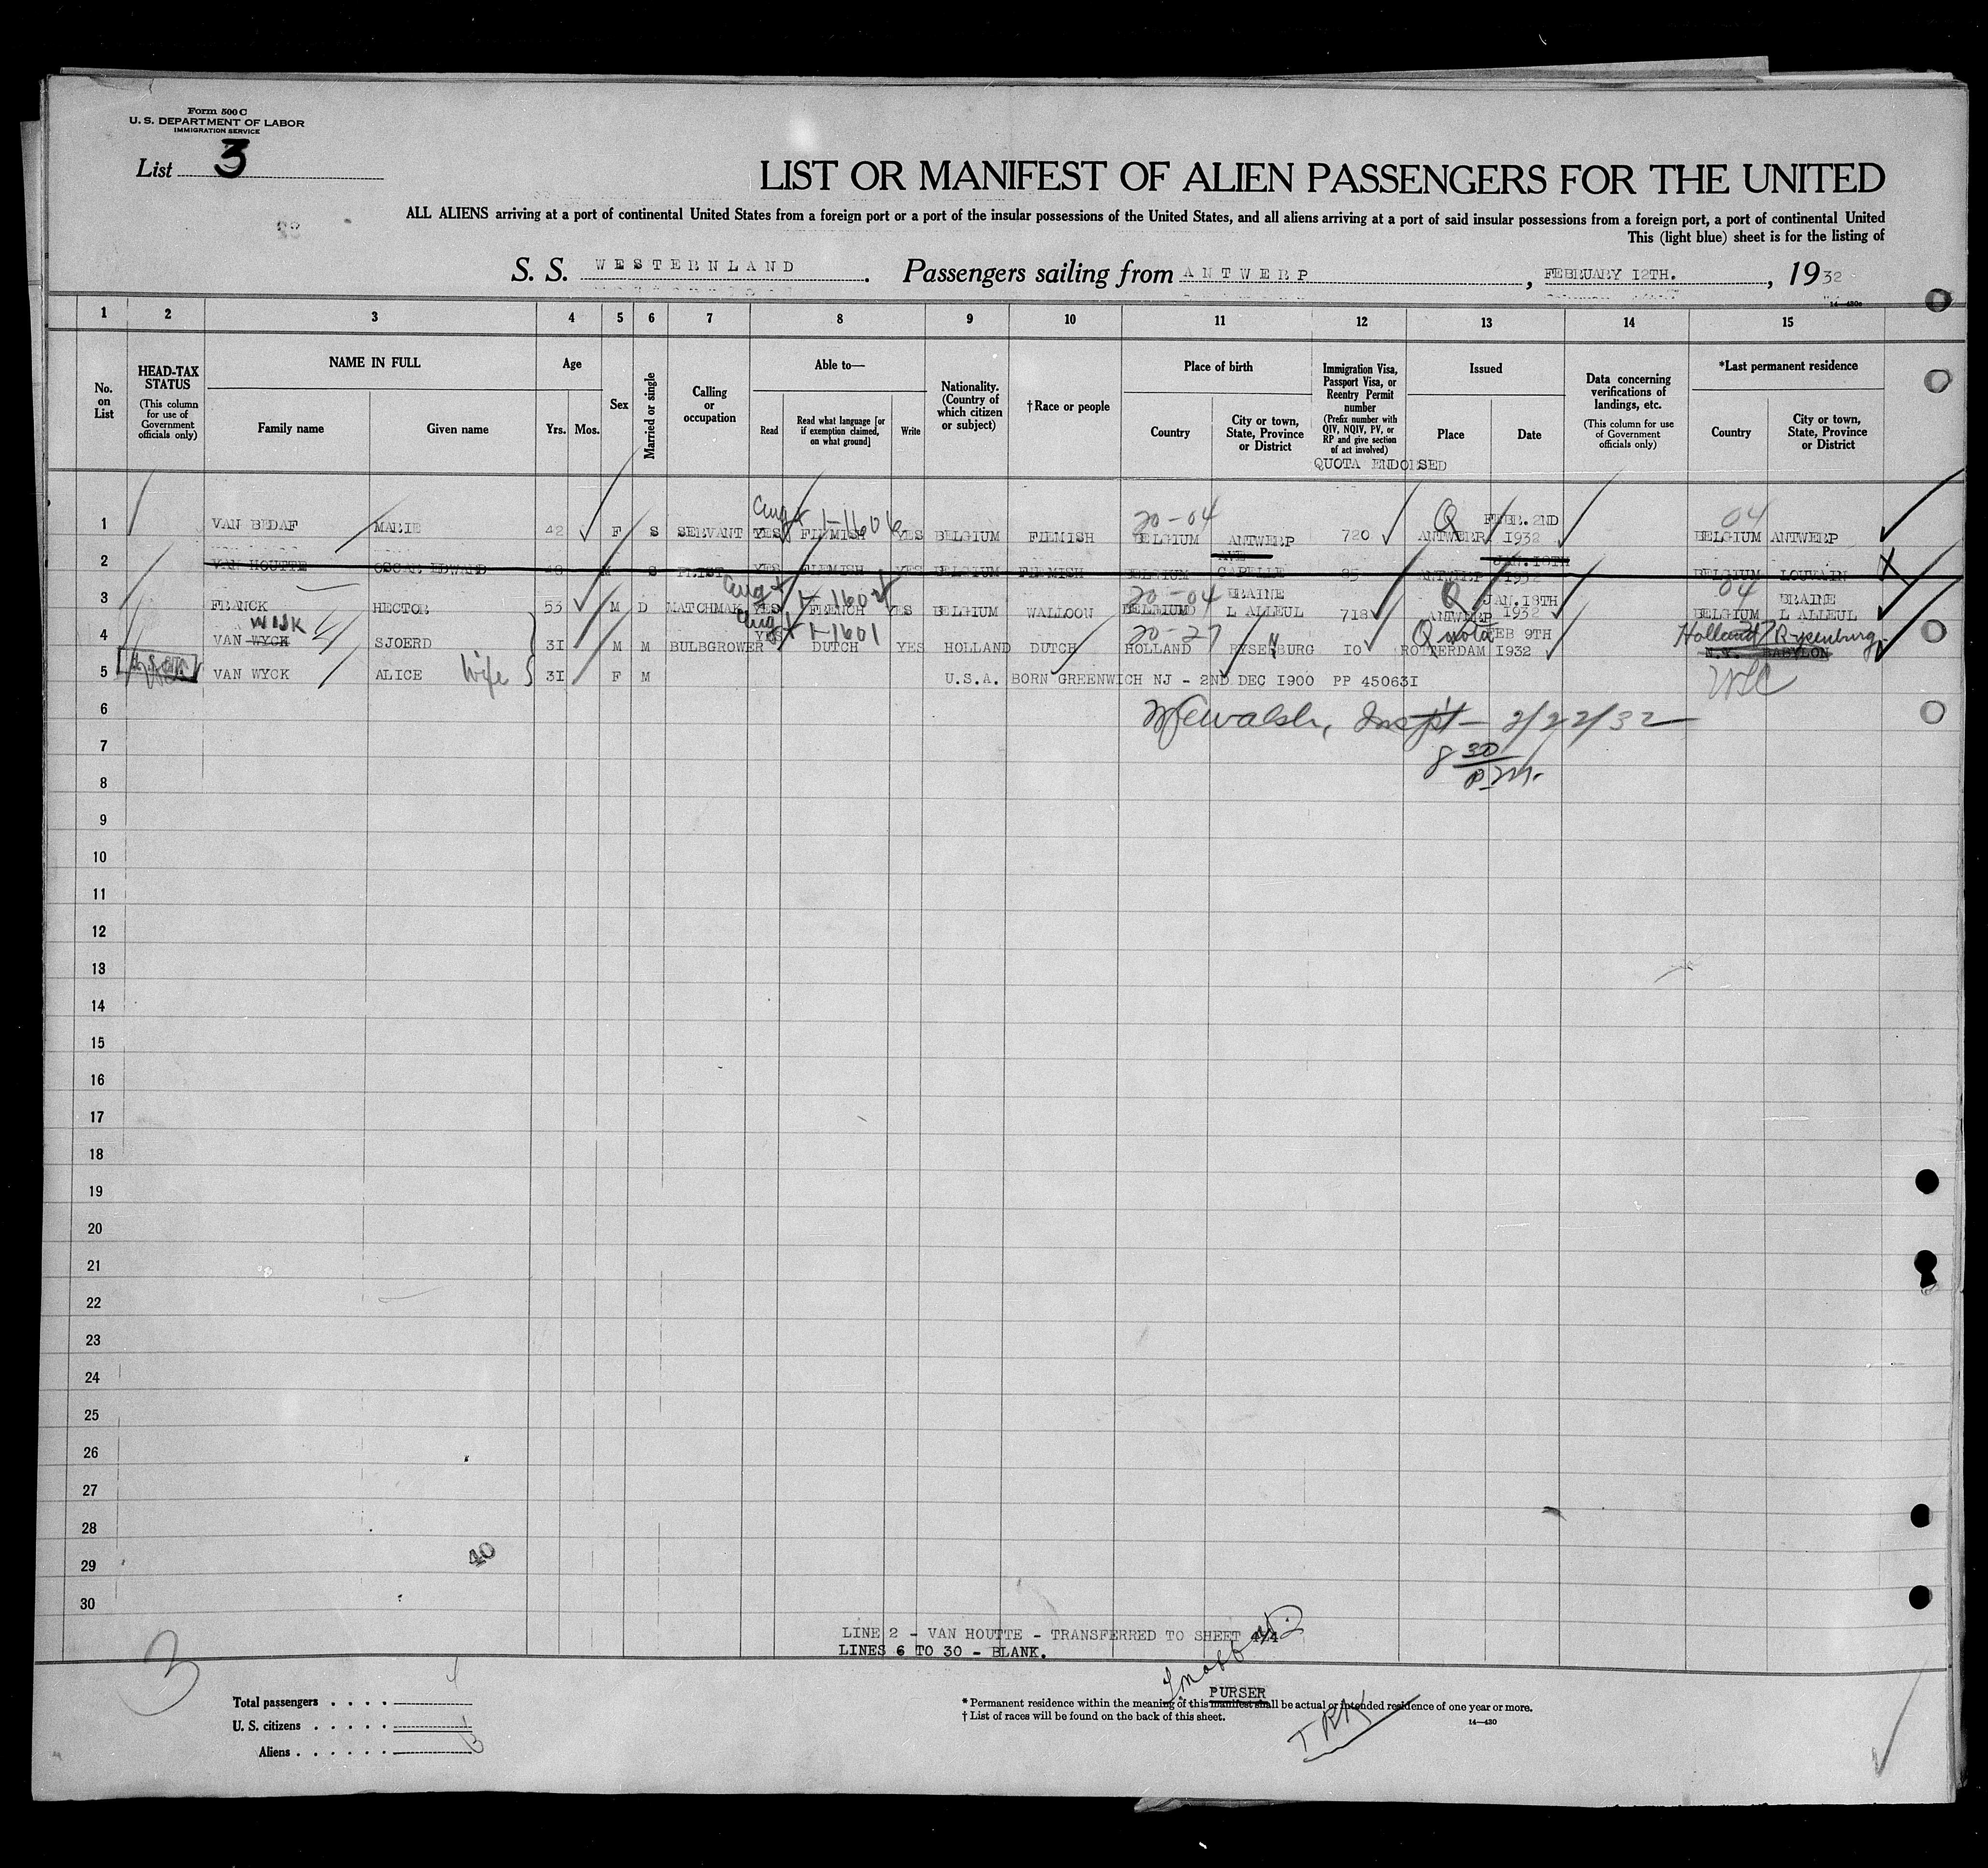 Form 500 C
U. S. DEPARTMENT OF LABOR
IMMIGRATION SERVICE
List 3
LIST OR MANIFEST OF ALIEN PASSENGERS FOR THE UNITED
ALL ALIENS arriving at a port of continental United States from a foreign port or a port of the insular possessions of the United States, and all aliens arriving at a port of said insular possessions from a foreign port, a port of continental United
This (light blue) sheet is for the listing of
S. S. WESTERNLAND. Passengers sailing from ANTWERP, FEBRUARY 12TH., 1932
1 2 3 4 5 6 7 8 9 10 11 12 13 14 15
No. on List
HEAD-TAX STATUS (This column for use of Government officials only)
NAME IN FULL
Family name Given name
Age
Yrs. Mos.
Sex
Married or single
Calling or occupation
Able to—
Read Read what language [or if exemption claimed, on what ground] Write
Nationality. (Country of which citizen or subject)
†Race or people
Place of birth
Country City or town, State, Province or District
Immigration Visa, Passport Visa, or Reentry Permit number (Prefix number with QIV, NQIV, PV, or RP and give section of act involved)
QUOTA ENDORSED
Issued
Place Date
Data concerning verifications of landings, etc. (This column for use of Government officials only)
*Last permanent residence
Country City or town, State, Province or District
20-04 Q FEBR. 2ND 04
1 VAN BEDAF MARIE 42 F S SERVANT YES FLEMISH YES BELGIUM FLEMISH BELGIUM ANTWERP 720 ANTWERP 1932 BELGIUM ANTWERP
2 VAN HOUTTE OSCAR EDWARD 48 M S PRIEST YES FLEMISH YES BELGIUM FLEMISH BELGIUM CAPELLE 85 ANTWERP JAN.18TH 1932 BELGIUM LOUVAIN
20-04 BRAINE Q JAN.18TH 04 BRAINE
3 FRANCK HECTOR 53 M D MATCHMAK YES FRENCH YES BELGIUM WALLOON BELGIUM L ALLEUL 718 ANTWERP 1932 BELGIUM L ALLEUL
WIJK 1-1601 20-27 Quota FEB 9TH Holland Rysenburg
4 VAN WYCK SJOERD 31 M M BULBGROWER YES DUTCH YES HOLLAND DUTCH HOLLAND RYSENBURG 10 ROTTERDAM 1932 N.Y. BABYLON
5 VAN WYCK ALICE Wife 31 F M U.S.A. BORN GREENWICH NJ - 2ND DEC 1900 PP 450631
6 Walsh, Inspt- 2/22/32
7 8 30
8 P.M.
9
10
11
12
13
14
15
16
17
18
19
20
21
22
23
24
25
26
27
28
29 40
30
LINE 2 - VAN HOUTTE - TRANSFERRED TO SHEET
LINES 6 TO 30 - BLANK.
3
PURSER
Total passengers . . . . 4
U. S. citizens . . . . . 1
Aliens . . . . . . 3
* Permanent residence within the meaning of this manifest shall be actual or intended residence of one year or more.
† List of races will be found on the back of this sheet.
14—430